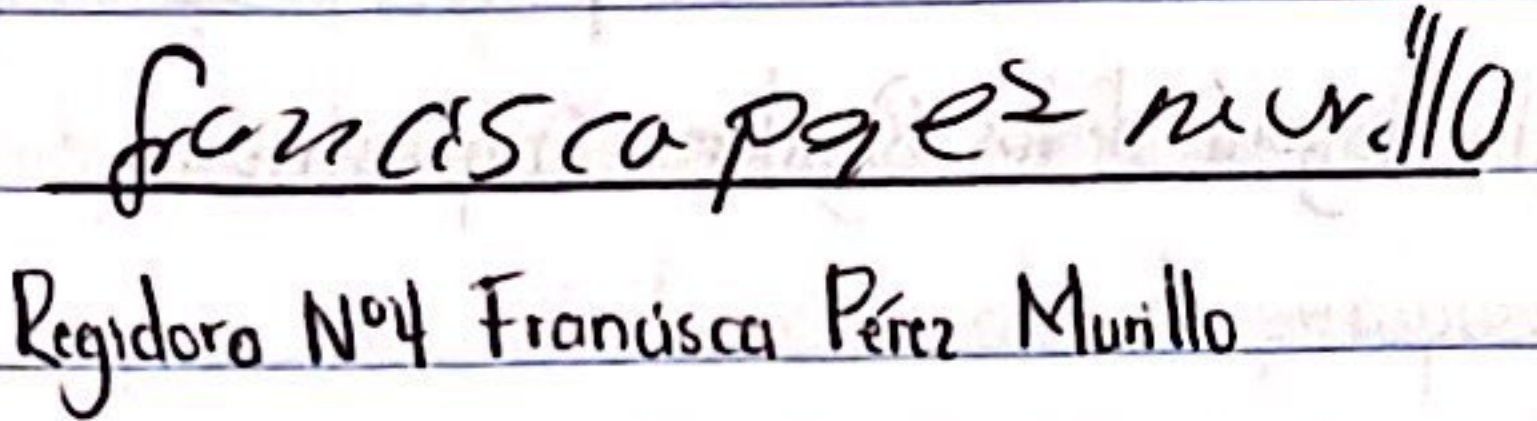 francisca paez murillo
Regidora Nº4 Francisca Pérez Murillo